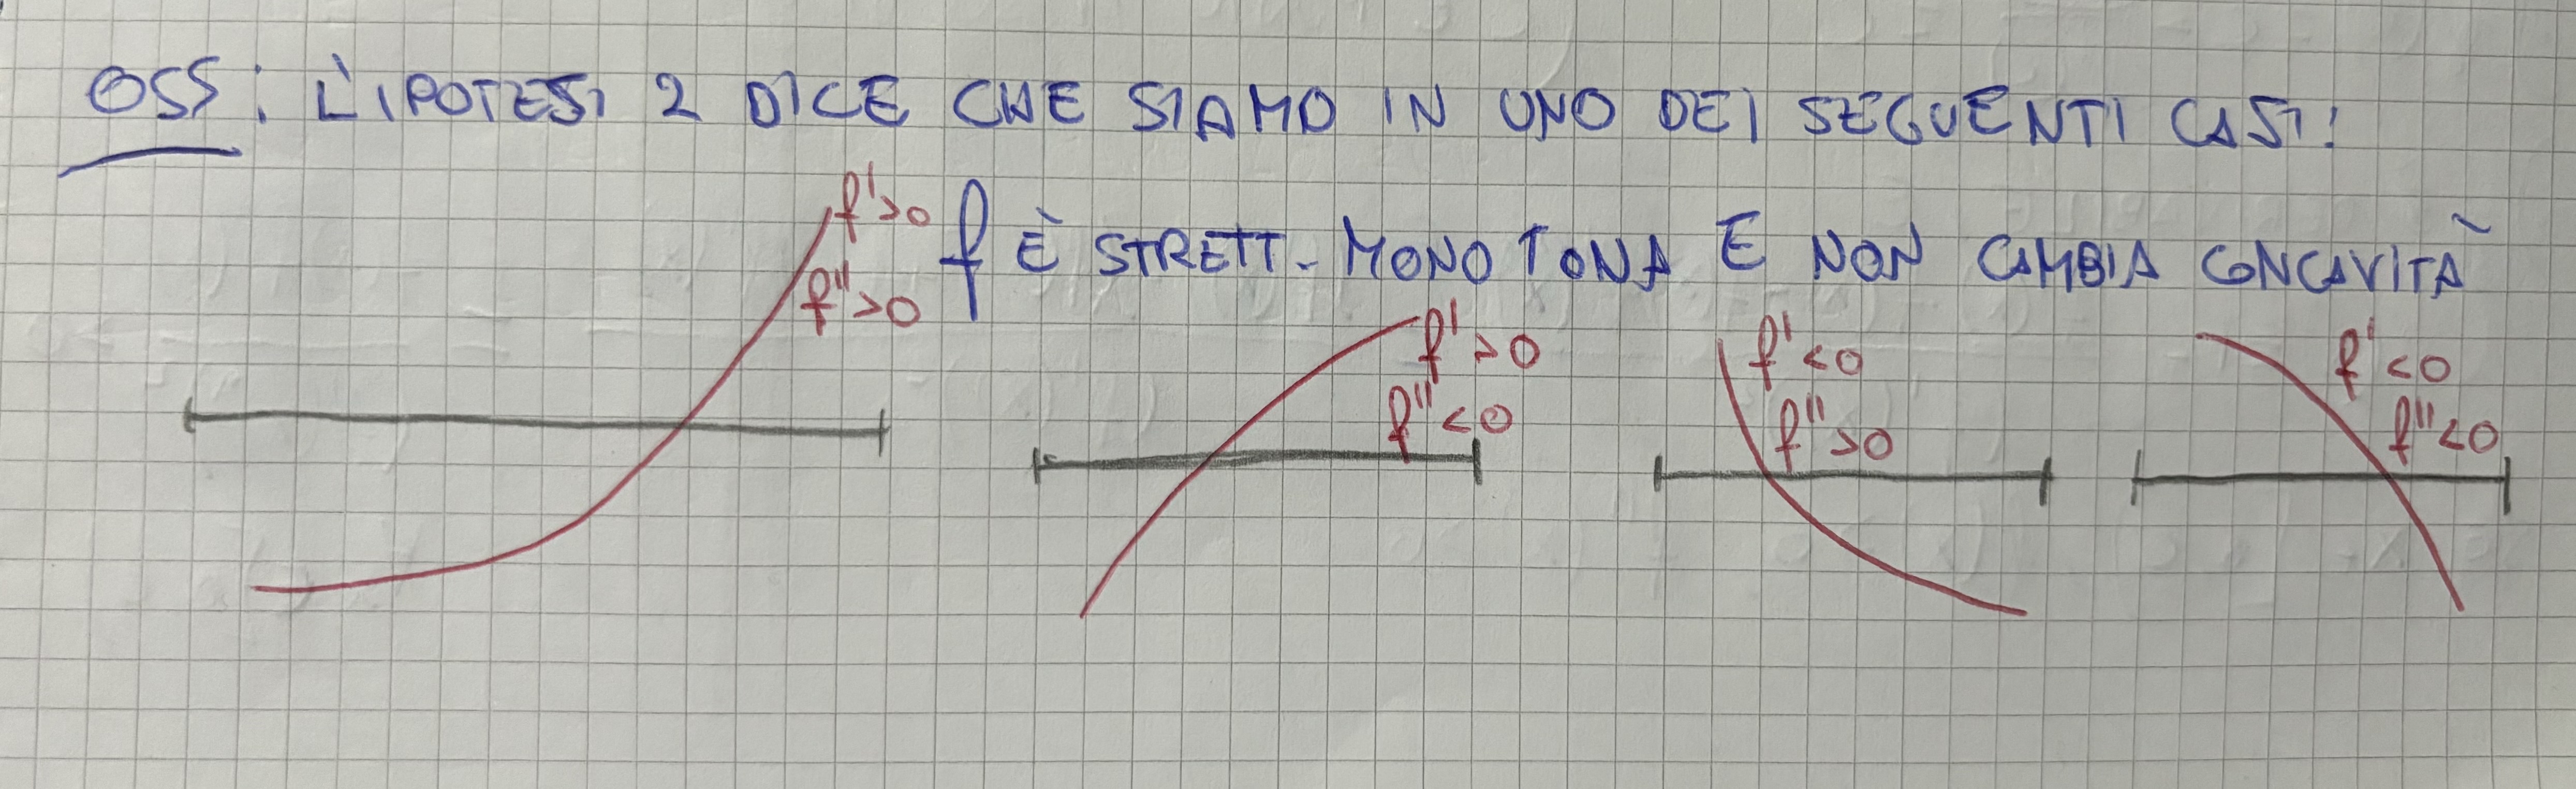 OSS: L'IPOTESI 2 DICE CHE SIAMO IN UNO DEI SEGUENTI CASI:
f È STRETT. MONOTONA E NON CAMBIA CONCAVITÀ
f'>0
f''>0
f'>0
f''<0
f'<0
f''>0
f'<0
f''<0